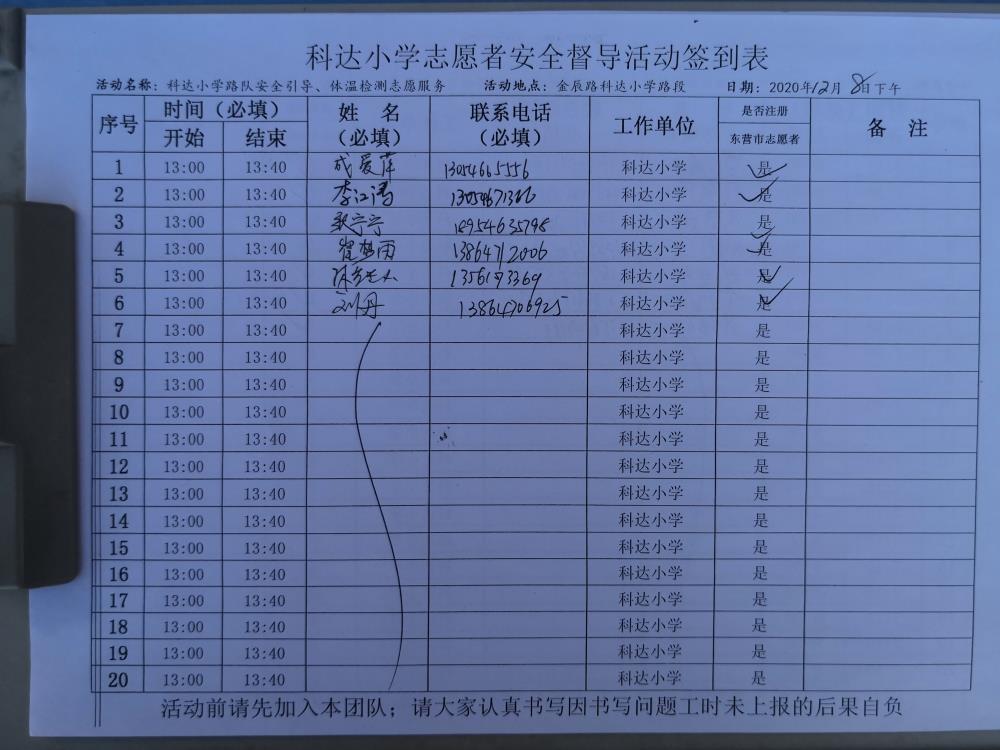 科达小学志愿者安全督导活动签到表
活动名称：科达小学路队安全引导、体温检测志愿服务 活动地点：金辰路科达小学路段 日期：2020年12月8日下午
序号 时间（必填） 姓 名（必填） 联系电话（必填） 工作单位 是否注册 备 注
开始 结束 东营市志愿者
1 13:00 13:40 成爱萍 13054665556 科达小学 是
2 13:00 13:40 李江涛 科达小学 是
3 13:00 13:40 宁宁 18954635798 科达小学 是
4 13:00 13:40 崔梦雨 13864712006 科达小学 是
5 13:00 13:40 科达小学 是
6 13:00 13:40 刘丹 13864706925 科达小学 是
7 13:00 13:40 科达小学 是
8 13:00 13:40 科达小学 是
9 13:00 13:40 科达小学 是
10 13:00 13:40 科达小学 是
11 13:00 13:40 科达小学 是
12 13:00 13:40 科达小学 是
13 13:00 13:40 科达小学 是
14 13:00 13:40 科达小学 是
15 13:00 13:40 科达小学 是
16 13:00 13:40 科达小学 是
17 13:00 13:40 科达小学 是
18 13:00 13:40 科达小学 是
19 13:00 13:40 科达小学 是
20 13:00 13:40 科达小学 是
活动前请先加入本团队；请大家认真书写因书写问题工时未上报的后果自负